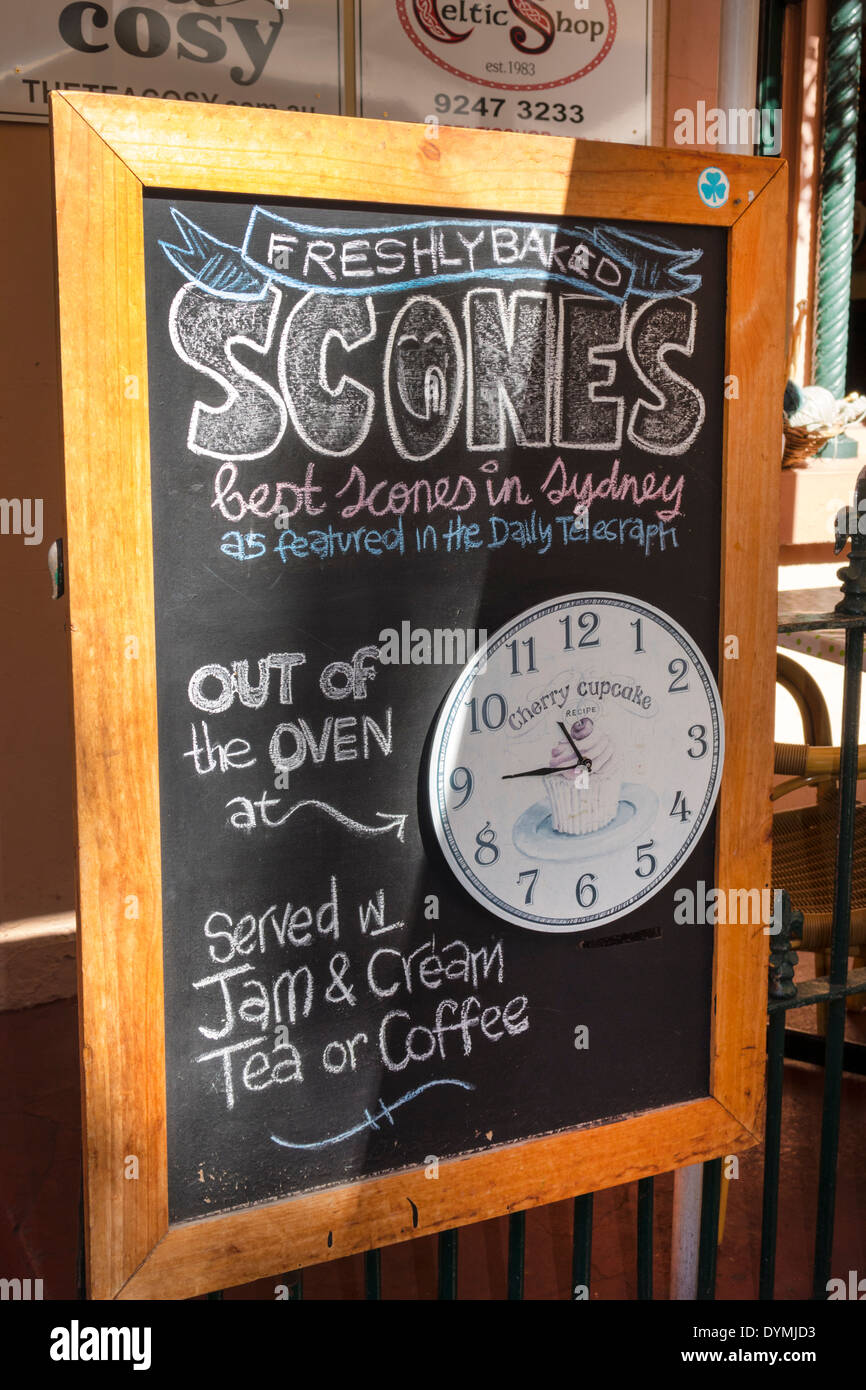 cosy
THETEACOSY.com.au
Celtic Shop
est.1983
9247 3233
FRESHLY BAKED
SCONES
best Scones in Sydney
as featured in the Daily Telegraph
OUT OF
the OVEN
at
12
1
2
3
4
5
6
7
8
9
10
11
Cherry cupcake
RECIPE
Served w
Jam & Cream
Tea or Coffee
alamy
a
alamy
Image ID: DYMJD3
www.alamy.com